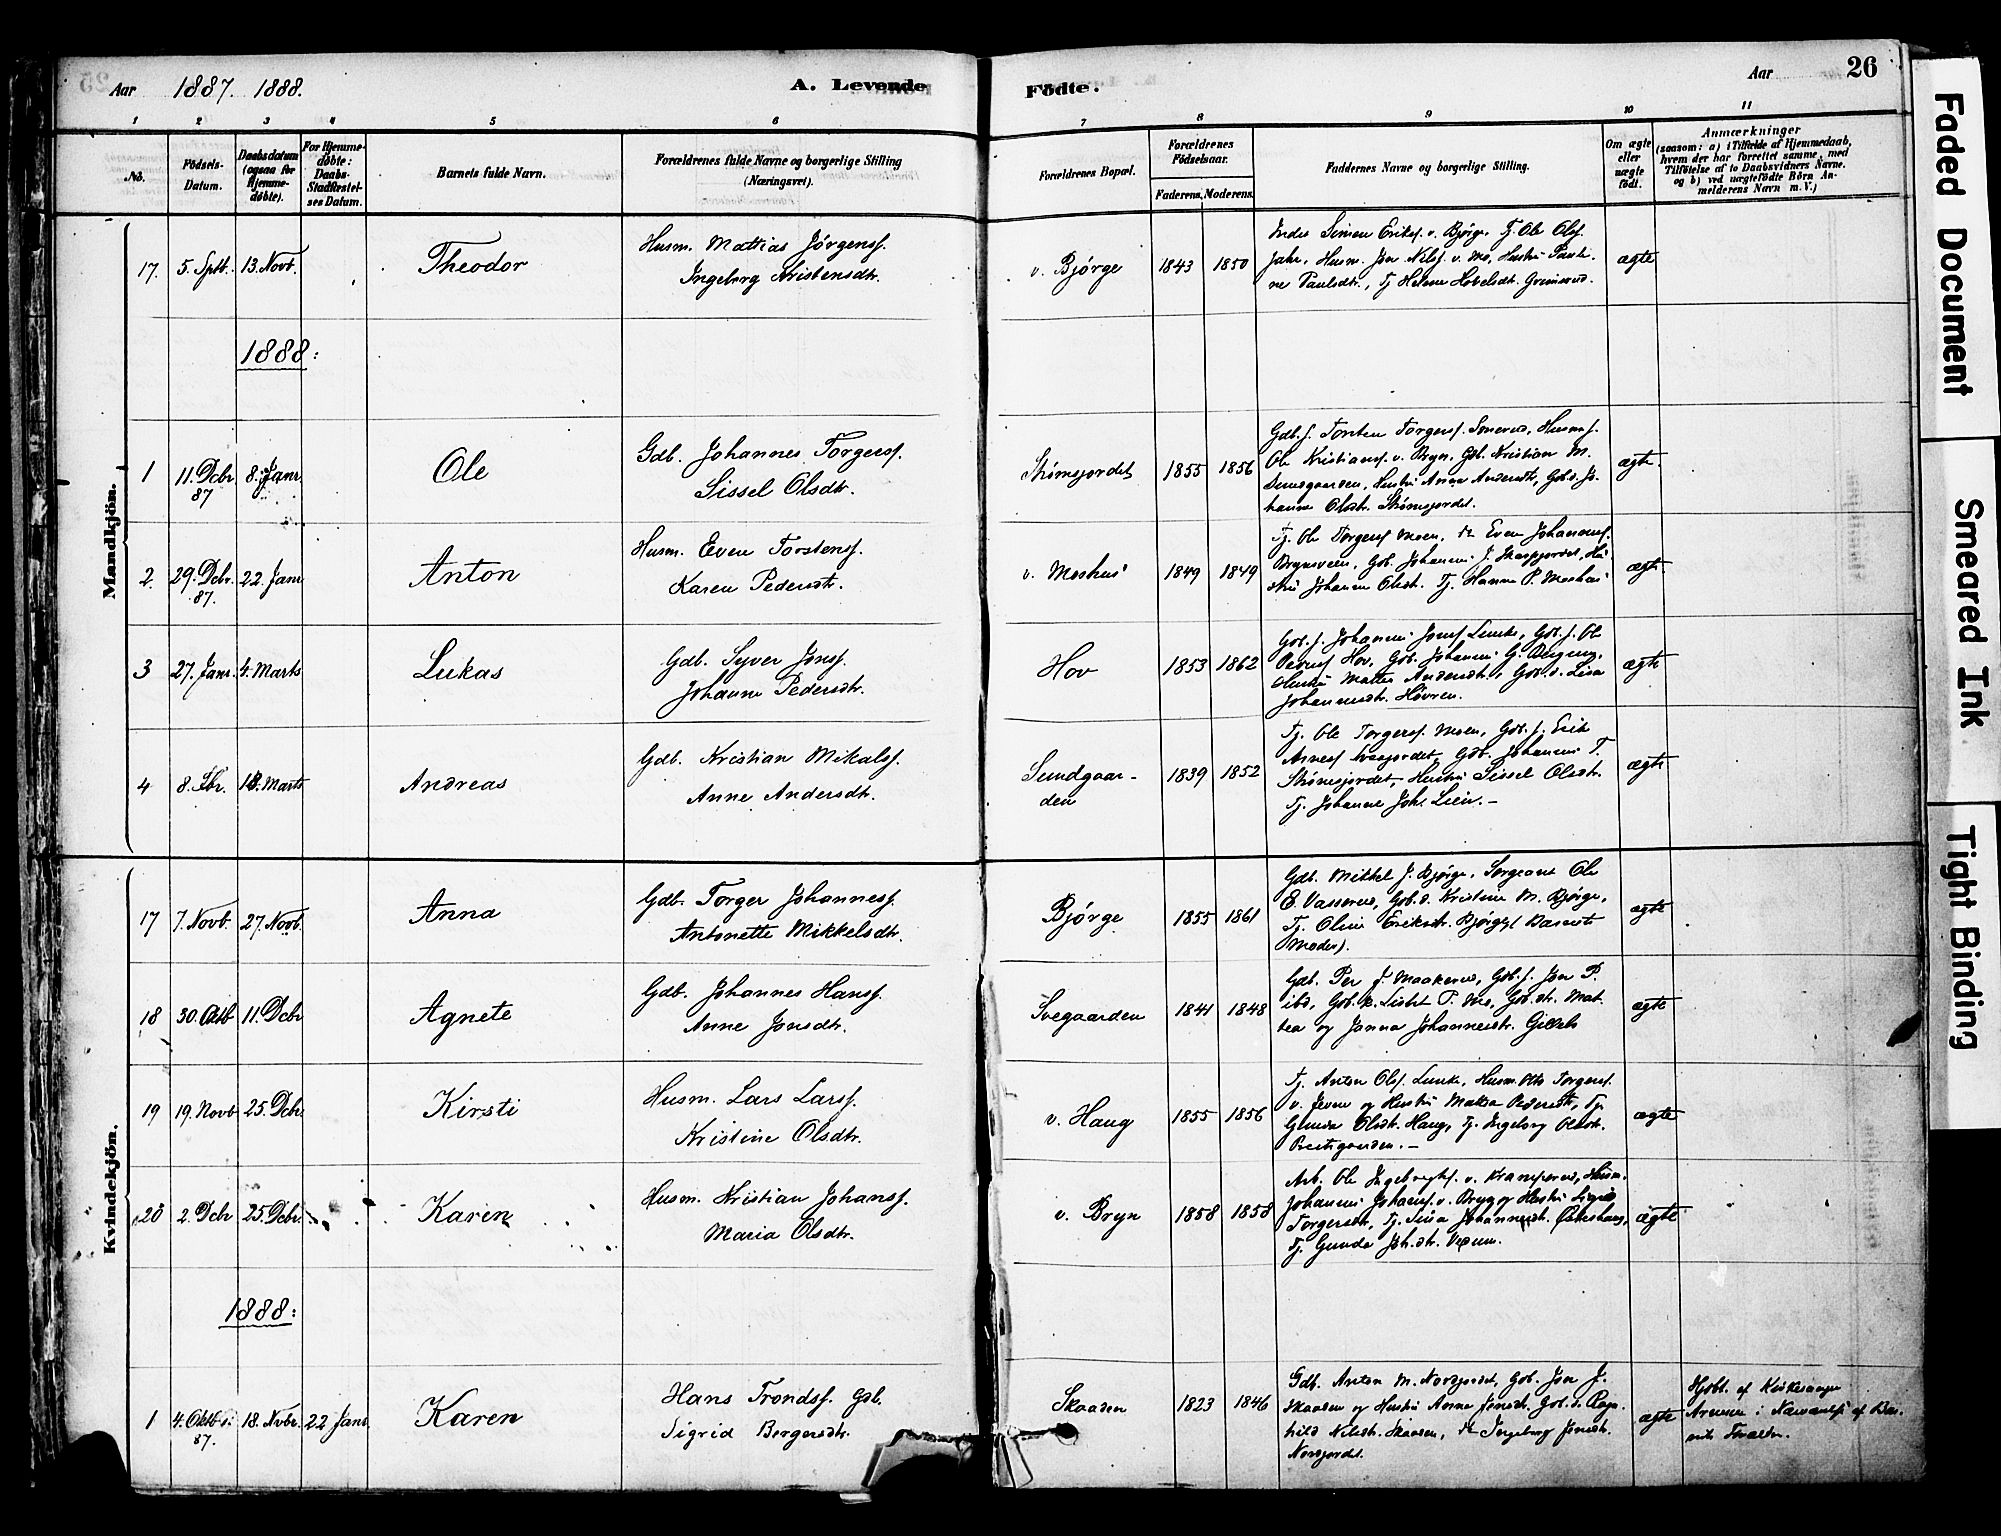 Aar 1887. 1888.
A. Levende Födte.
Aar
26
1 2 3 4 5 6 7 8 9 10 11
No.
Födsels-Datum.
Daabsdatum (ogsaa for Hjemmedöbte).
For Hjemmedöbte: Daabs-Stadfæstelses Datum.
Barnets fulde Navn.
Forældrenes fulde Navne og borgerlige Stilling (Næringsvei).
Forældrenes Bopæl.
Forældrenes Födselsaar.
Faderens. Moderens.
Faddernes Navne og borgerlige Stilling.
Om ægte eller uægte födt.
Anmærkninger
(saasom: a) i Tilfælde af Hjemmedaab, hvem der har forrettet samme, med Tilföielse af to Daabsvidners Navne, og b) ved uægtefödte Börn Anmelderens Navn m.V.)
Mandkjön.
17. 5. Sptb. 13. Novb. Theodor
Husm. Mattias Jörgensf.
Ingeborg Kristensdtr.
v. Bjørge 1843 1850
Inds Simen Eriksf. v. Bjørge, Tj. Ole Olsf.
Jahr, Husm. Jon Nilsf. v. Mo, Hustru Pauline
Paulsdtr., Tj Helene Hovelsdt. Grimsrud.
ægte
1888:
1 11. Dcbr 87 8. Janr Ole
Gdb. Johannes Torgersf.
Sissel Olsdtr.
Strømsjordet 1855 1856
Gdb. f. Torsten Torgersf. Sonerud, Husm f.
Ole Kristiansf. v. Bryn, Gdb. Kristian M.
Sundgaarden, Hustru Anne Andersdtr, Gbd. Johanne
Olsdtr. Strømsjordet.
ægte.
2. 29. Dcbr. 87. 22. Janr Anton
Husm. Even Torstensf.
Karen Pedersdtr.
v. Moshus 1849 1849
Tj. Ole Torgersf Moen, do Even Johannesf.
Brynsveen, Gdb. Johannes J.
Johanne Olsdt. Tj. Hanna P. Moshus
ægte.
3 27. Janr. 4. Marts Lukas
Gdb. Syver Jonsf.
Johanne Pedersdtr.
Hov 1853 1862
Gdb. f. Johannes Jonsf Lunke, Gdb. f. Ole
Pedersf Hov, Gdb. Johannes G.
Hustru Mattea Andersdtr, Gdb. d. Lisa
Johannesdtr. Høvren.
ægte
4 8. Fbr. 18. Marts Andreas
Gdb. Kristian Mikalsf.
Anne Andersdtr.
Sundgaarden 1839 1852
Tj. Ole Torgersf. Moen, Gdb. f. Erik
Gdb. Johannes T.
Strømsjordet, Hustru Sissel Olsdtr.
Tj. Johanne Johs Lien.–
ægte
Kvindekjön.
17 7. Novb. 27. Novb. Anna
Gdb. Torger Johannesf.
Antonette Mikkelsdtr.
Bjørge 1855 1861
Gdb. Mikkel J. Bjørge, Sergeant Ole
E. Vasserud, Gdb. d. Kristine M. Bjørge,
Tj. Oline Eriksdtr. Bjørge (Barnets
Moder).
ægte
18 30. Oktb 11. Dcbr Agnete
Gdb. Johannes Hansf.
Anne Jonsdtr.
Svegaarden 1841 1848
Gdb. Per J. Maakerud, Gdb. f. Jon P.
ibd, Gdb. k. Lisbet P. Mo, Gdb. dtr. Mattea
og Janna Johannesdtr. Gilleb
ægte
19 19. Novb 25. Dcbr Kirsti
Husm. Lars Larsf.
Kristine Olsdtr.
v. Haug 1855 1856
Tj. Anton Olsf. Lunke, Husm. Otto Torgersf.
v. Jeven og Hustru Matea Pedersdtr, Tj.
Gunda Olsdtr. Haug, Tj. Ingeborg Olsdtr.
Prestgarden.–
ægte
20 2. Dcbr 25. Dcbr. Karen
Husm. Kristian Johansf.
Maria Olsdtr.
v. Bryn 1858 1858
Arb. Ole Ingebregtsf. v. Kramperud, Husm.
Johannes Johansf. v. Bryn og Hustru Sigrid
Torgersdtr, Tj. Lisa Johannesdt.
Tj. Gunda Joh.dtr. Vesum.
ægte
1888:
1 4. Oktb. 87. 18. Novbr. 22 Janr. Karen
Hans Trondsf. Gdb.
Sigrid Bergersdtr.
Skaaden 1823 1846
Gdb. Anton M. Norsjordet, Gdb. Jon J.
Skaaden og Hustru Anne Jonsdtr. Gdb. d. Ragnhild
Nilsdtr. Skaaden, do Ingeborg Jonsdtr.
Norsjordet.
ægte
Hjdbt. af Kirkesanger
i Nærværelse af
Faded Document
Smeared Ink
Tight Binding